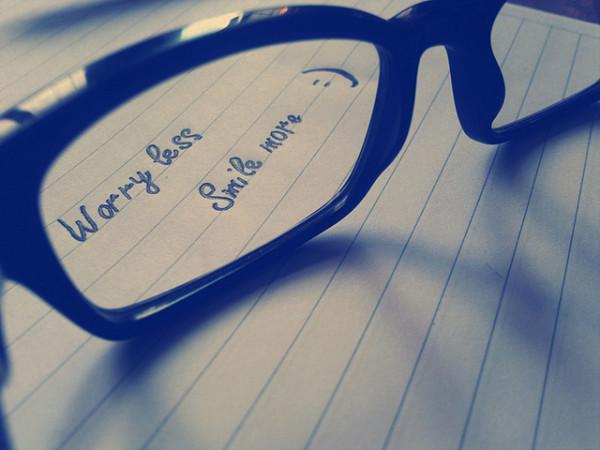 Worry less
Smile more :)